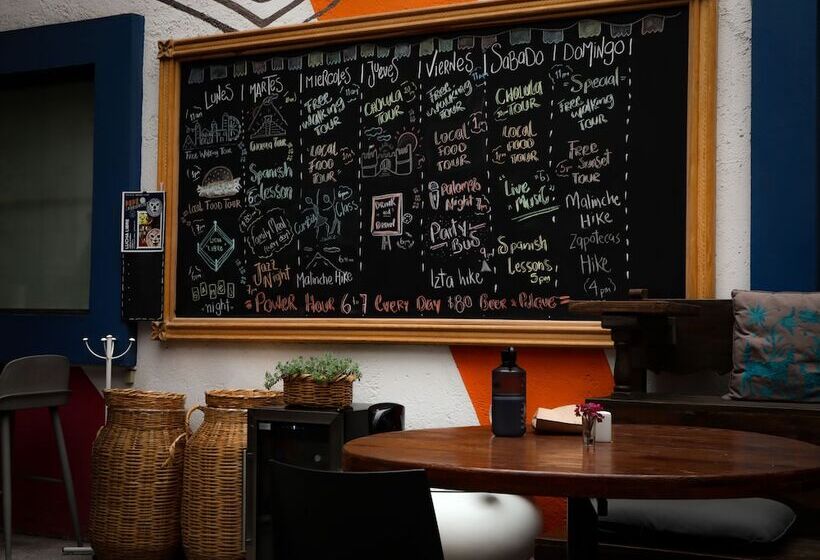 LUNES
MARTES
MIERCOLES
JUEVES
VIERNES
SABADO
DOMINGO
11am
Free Walking Tour
Local Food Tour
LUCHA LIBRE
night
Spanish
lesson
JAZZ
NIGHT
FREE
WALKING
TOUR
LOCAL
FOOD
TOUR
Class
Malinche Hike
CHOLULA
TOUR
Free
Walking
TOUR
Local
FOOD
TOUR
Palomita
Night
Party
BUS
9pm
Izta hike
CHOLULA
TOUR
Local
FOOD
TOUR
Live Music
Spanish
Lessons
5pm
11am
Special
Free
Walking
TOUR
Free
Sunset
TOUR
Malinche
Hike
Zapotecas
Hike
(4pm
POWER HOUR 6-7 EVERY DAY $80 BEER & PULQUE